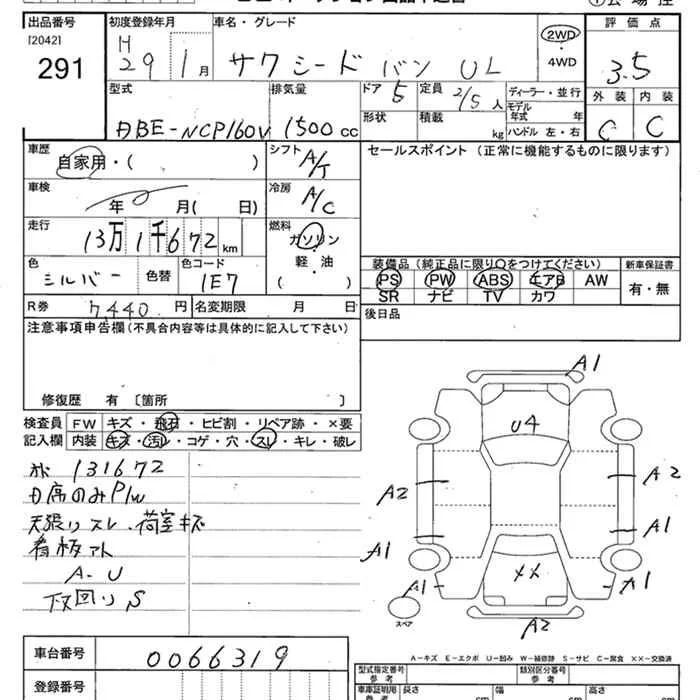 出品番号
[2042]
291
初度登録年月
H 29 1 月
車名・グレード
サクシードバン UL
2WD
・
4WD
評価点
3.5
外装 内装
C C
型式
DBE-NCP160V
排気量
1500 cc
ドア 5
定員 2/5 人
形状
積載 kg
ディーラー・並行
モデル年式 年
ハンドル 左・右
車歴
自家用・( )
シフト A/T
車検
年 月( 日)
冷房 A/C
走行
13万1千672 km
燃料
ガソリン
軽・油
( )
色
シルバー
色替
色コード
1E7
R券 7,440 円
名変期限 月 日
セールスポイント (正常に機能するものに限ります)
装備品 (純正品に限り○をつけてください)
PS PW ABS エアB AW
SR ナビ TV カワ
新車保証書
有・無
後日品
注意事項申告欄(不具合内容等は具体的に記入して下さい)
修復歴 有 〔箇所
検査員 FW キズ・飛石・ヒビ割・リペア跡・×要
記入欄 内装 キズ・汚レ・コゲ・穴・スレ・キレ・破レ
131672
D席のみP/W
天張りスレ・荷室キズ
看板アト
A-U
下回りS
A1
U4
A2
A2
A1
A1
A1
××
A1
スペア
A2
車台番号
0066319
登録番号
A-キズ E-エクボ U-凹み W-補修跡 S-サビ C-腐食 ××-交換済
型式指定番号
参考
類別区分番号
参考
車庫証明用
参考
長さ cm
幅 cm
高さ cm